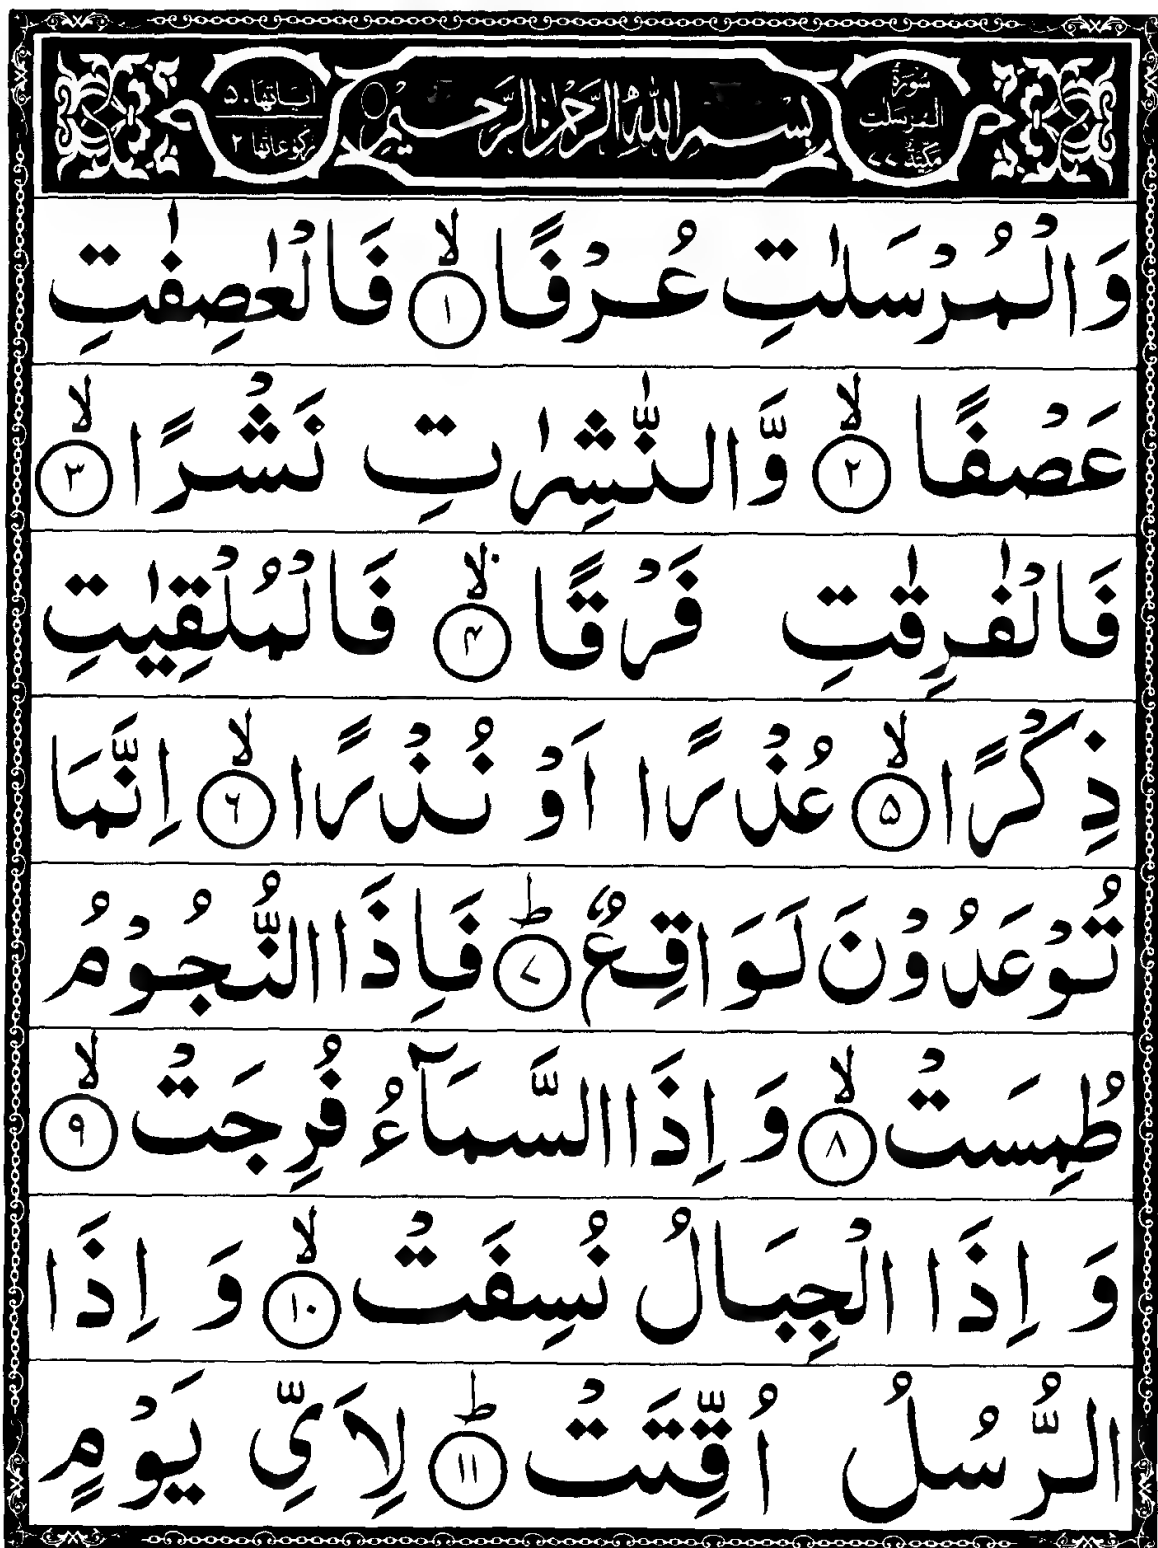 سُوْرَةُ الْمُرْسَلٰتِ مَكِّيَّةٌ ٧٧
بِسْمِ اللّٰهِ الرَّحْمٰنِ الرَّحِيْمِ
اٰيَاتُهَا ٥٠
رُكُوْعَاتُهَا ٢
وَالْمُرْسَلٰتِ عُرْفًا ۙ‏ ﴿۱﴾ فَالْعٰصِفٰتِ
عَصْفًا ۙ‏ ﴿۲﴾ وَّالنّٰشِرٰتِ نَشْرًا ۙ‏ ﴿۳﴾
فَالْفٰرِقٰتِ فَرْقًا ۙ‏ ﴿۴﴾ فَالْمُلْقِيٰتِ
ذِكْرًا ۙ‏ ﴿۵﴾ عُذْرًا اَوْ نُذْرًا ۙ‏ ﴿۶﴾ اِنَّمَا
تُوْعَدُوْنَ لَوَاقِعٌ ؕ‏ ﴿۷﴾ فَاِذَا النُّجُوْمُ
طُمِسَتْ ۙ‏ ﴿۸﴾ وَ اِذَا السَّمَآءُ فُرِجَتْ ۙ‏ ﴿۹﴾
وَ اِذَا الْجِبَالُ نُسِفَتْ ۙ‏ ﴿۱۰﴾ وَ اِذَا
الرُّسُلُ اُقِّتَتْ ؕ‏ ﴿۱۱﴾ لِاَيِّ يَوْمٍ